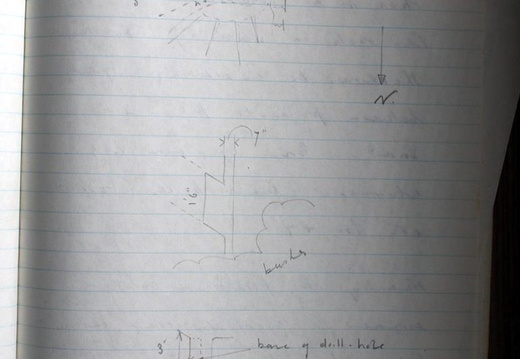 N.
7"
16"
bushes
3'
base of drill-hole